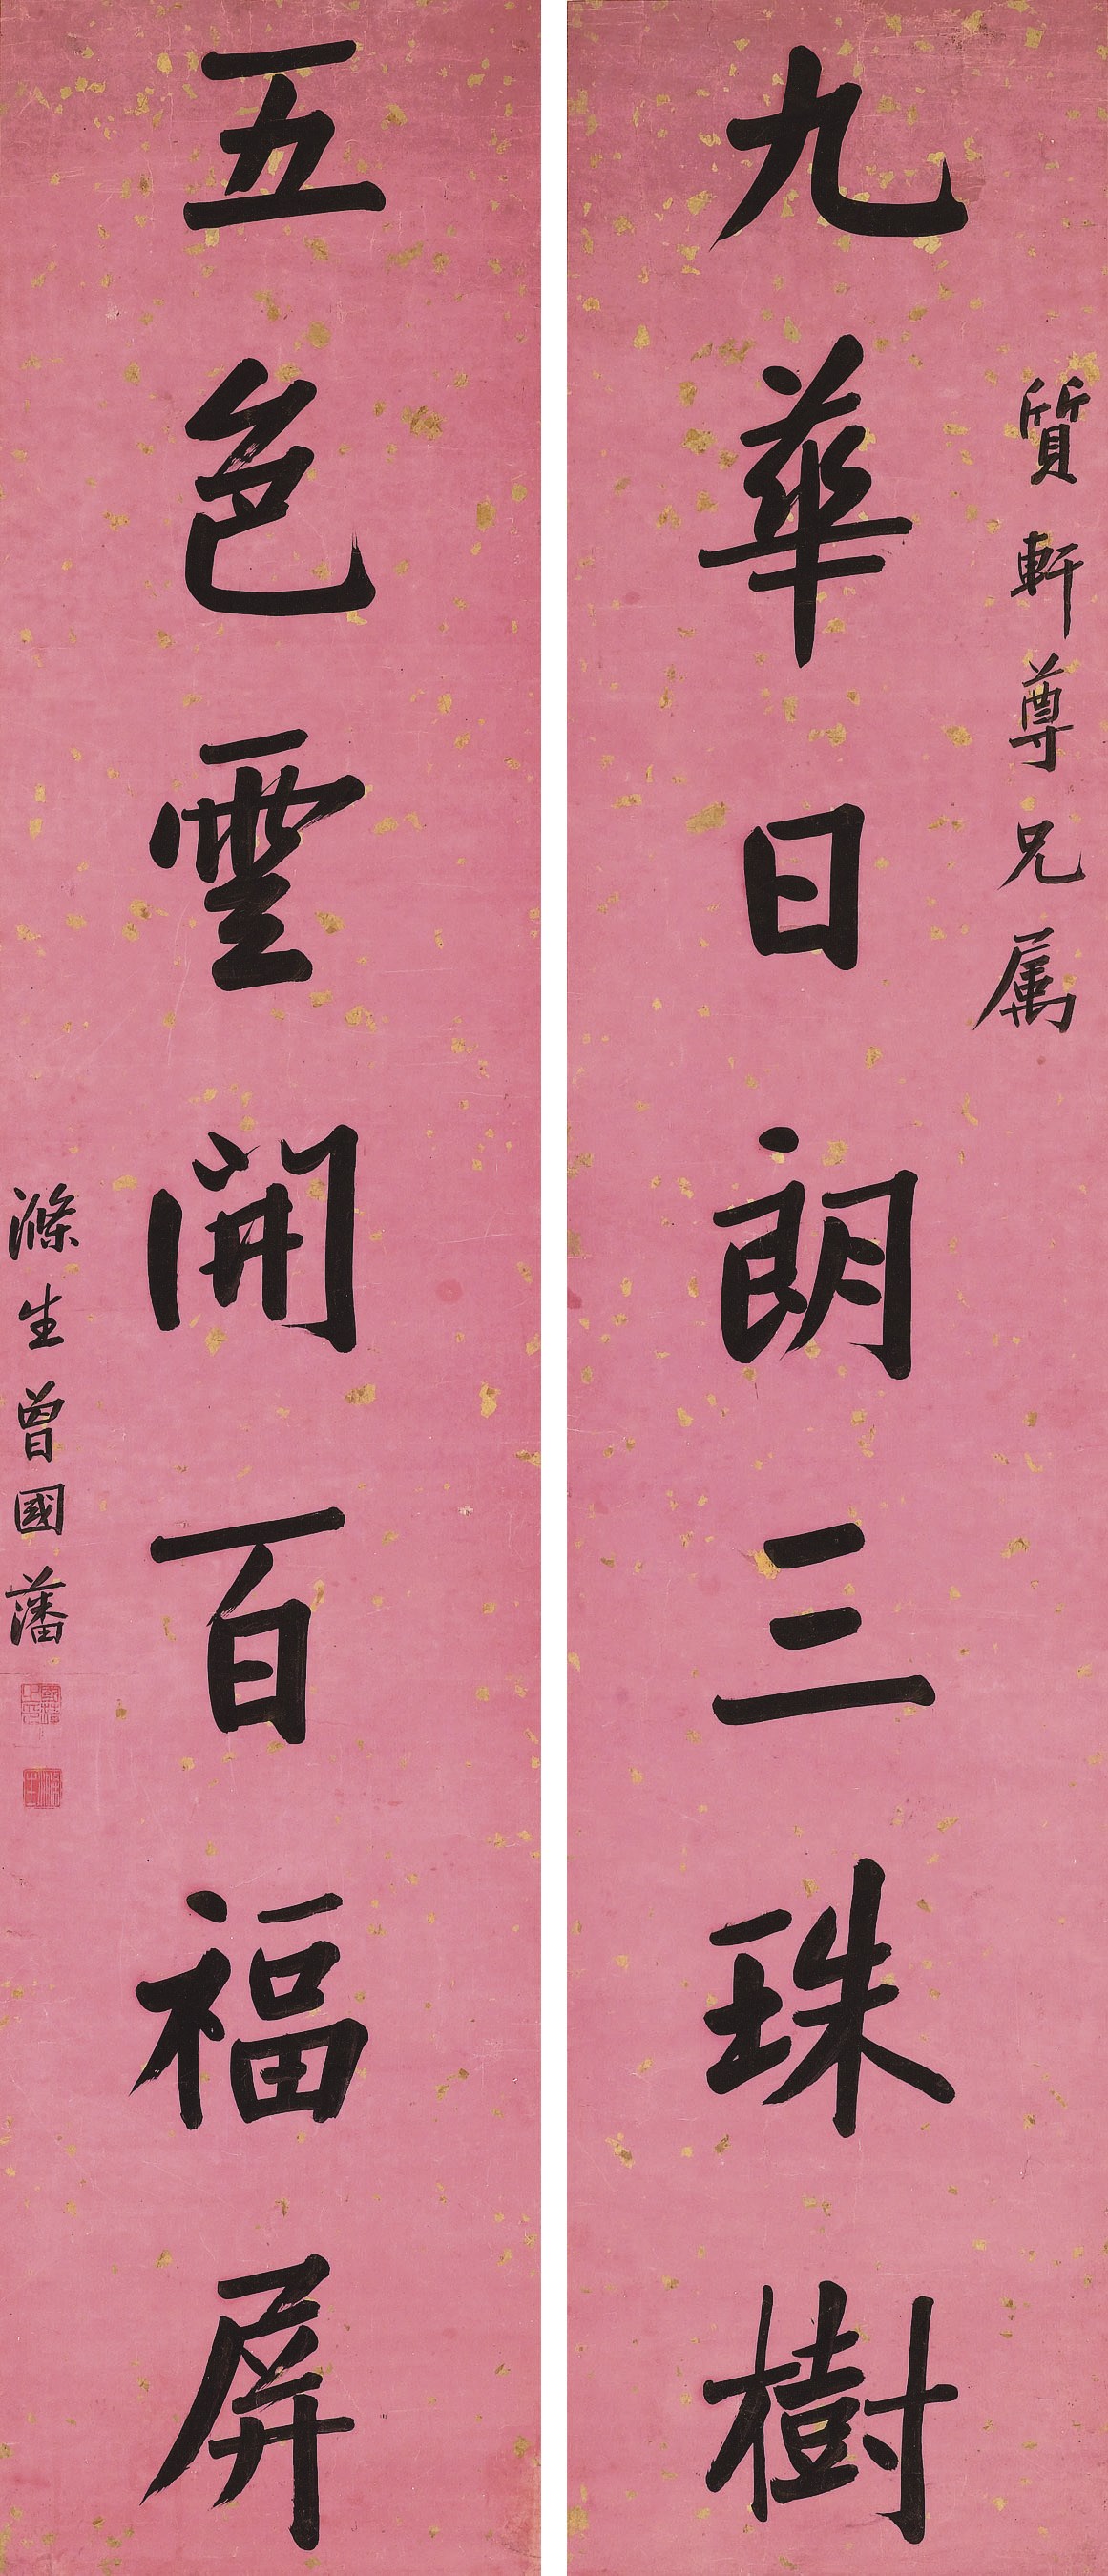 質軒尊兄属
九華日朗三珠樹
五色雲開百福屏
滌生曾國藩